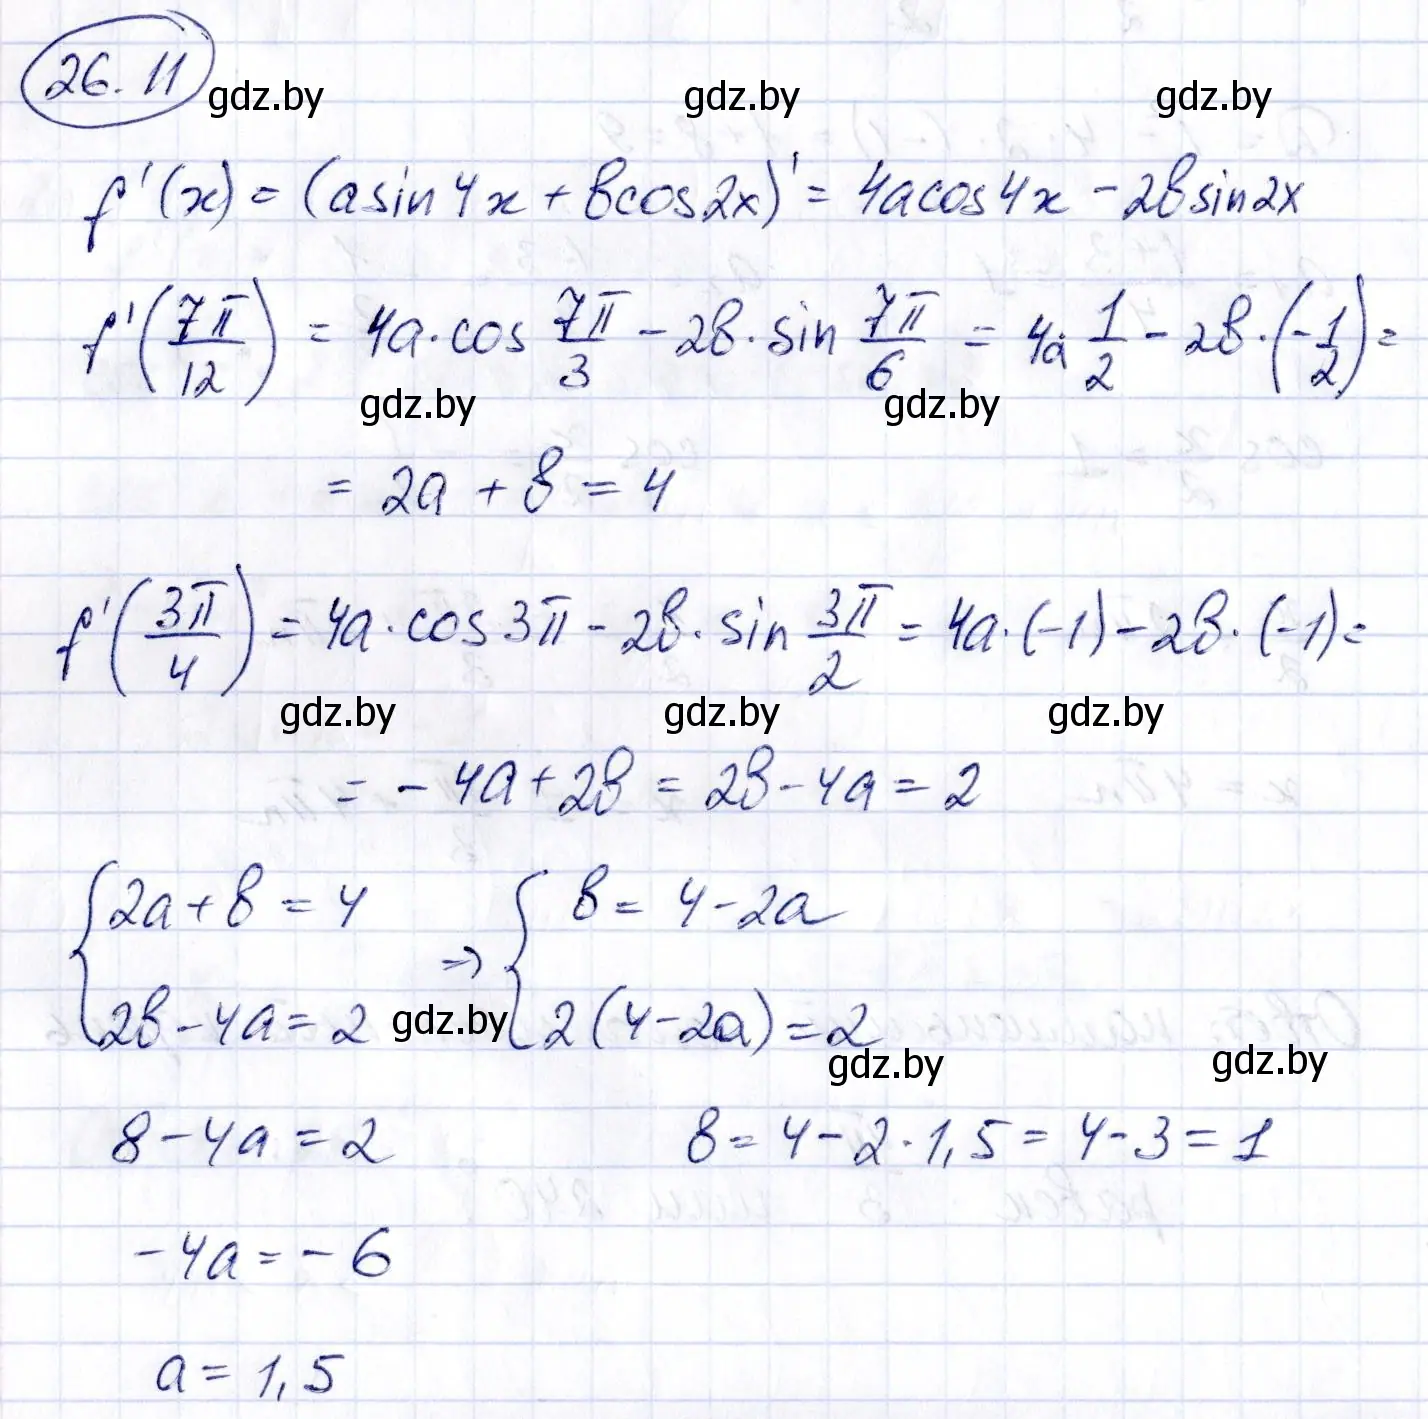 26.11
gdz.by gdz.by gdz.by
f'(x) = (asin4x + bcos2x)' = 4acos4x - 2bsin2x
f'(7π/12) = 4a·cos 7π/3 - 2b·sin 7π/6 = 4a·1/2 - 2b·(-1/2) =
gdz.by gdz.by
= 2a + b = 4
f'(3π/4) = 4a·cos3π - 2b·sin 3π/2 = 4a·(-1) - 2b·(-1) =
gdz.by gdz.by gdz.by
= -4a + 2b = 2b - 4a = 2
{2a + b = 4 ⇒ {b = 4 - 2a
2b - 4a = 2 gdz.by 2(4 - 2a) = 2
gdz.by gdz.by
8 - 4a = 2 b = 4 - 2·1,5 = 4 - 3 = 1
-4a = -6
a = 1,5